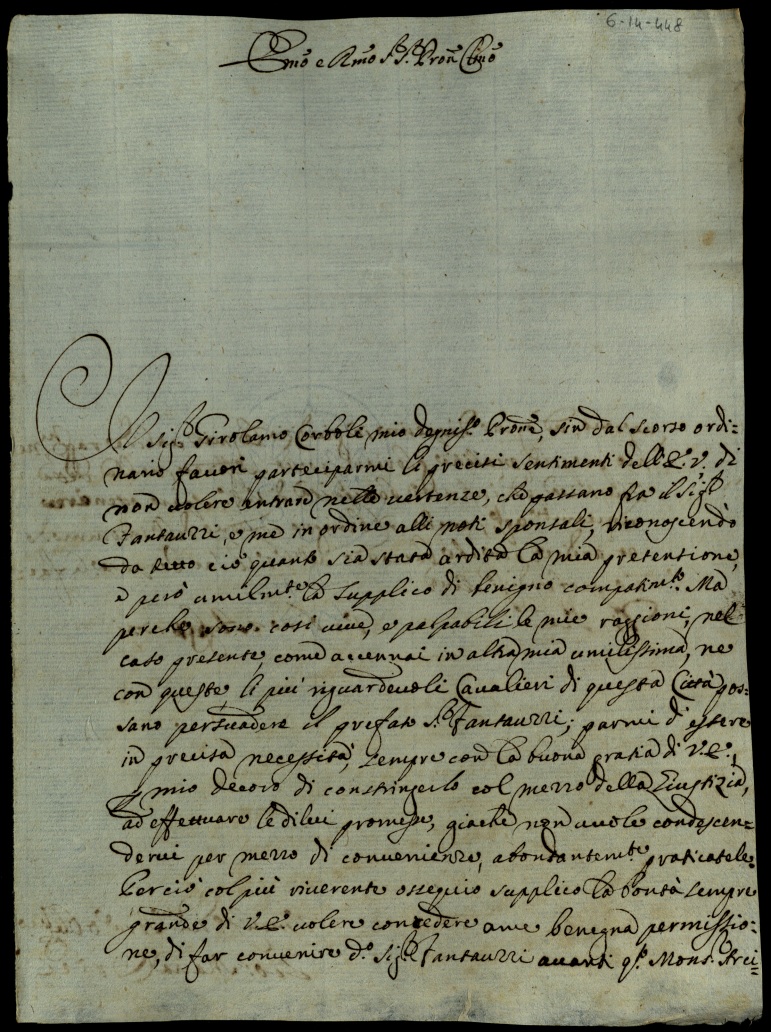 6-14-448
Emō e Rmō Sr. Sr. Pron Clmō
Il Sigr. Girolamo Corboli mio degniss.o Pronē, sin dal scorso ordi=
nario favorì participarmi li precisi sentimenti dell'E.V. di
non volere entrare nelle vertenze, che passano fra il Sigr.
Fantauzzi, e me in ordine alli noti sponsali, riconoscendo
da tutto ciò quanto sia stata ardita la mia pretentione,
e però umilmte. la supplico di benigno compatimto. Ma
perche sono così vive, e palpabili le mie raggioni, nel
caso presente, come accennai in altra mia umilissima, ne
con queste li più riguardevoli Cavalieri di questa Città pos=
sano persuadere il prefato Sr. Fantauzzi; parmi d'essere
in precisa necessità, sempre con la buona gratia di V.E.,
p mio decoro di constringerlo col mezzo della Giustizia,
ad effettuare le di lui promesse, giache non vuole condescen=
dervi per mezzo di convenienze, abondantemte. praticatele.
Perciò col più riverente ossequio supplico la bontà sempre
grande di V.E. volere concedere a me benegna permissio=
ne, di far convenire d.o Sigr. Fantauzzi avanti q.o Mons. Arci=